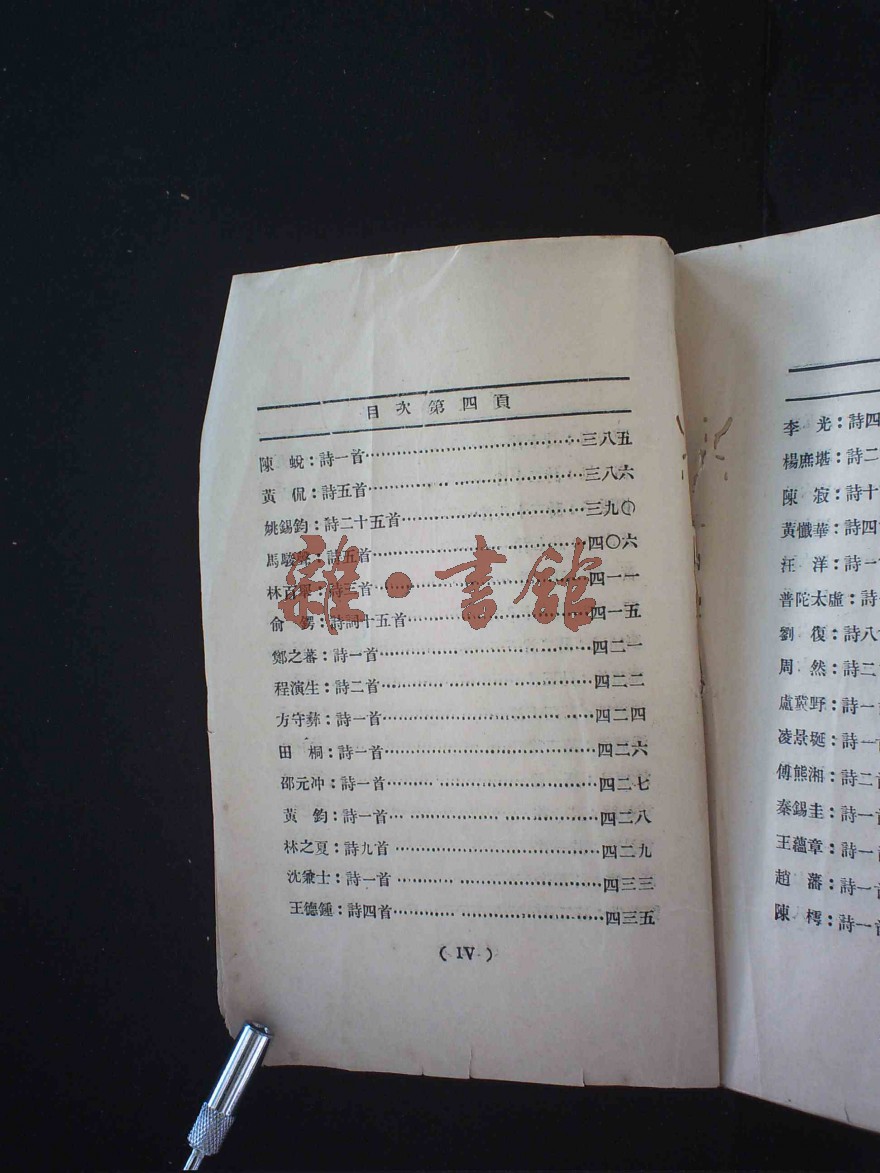 目次第四頁
陳蛻：詩一首……三八五
黃侃：詩五首……三八六
姚錫鈞：詩二十五首……三九〇
馬駿聲：詩五首……四〇六
林百舉：詩三首……四一一
俞鍔：詩詞十五首……四一五
鄭之蕃：詩一首……四二一
程演生：詩二首……四二二
方守彝：詩一首……四二四
田桐：詩一首……四二六
邵元冲：詩一首……四二七
黃鈞：詩一首……四二八
林之夏：詩九首……四二九
沈兼士：詩一首……四三三
王德鍾：詩四首……四三五
(IV)
李光：詩四
楊庶堪：詩二
陳寂：詩十
黃懺華：詩四
汪洋：詩一
普陀太虛：詩
劉復：詩八
周然：詩二
盧冀野：詩一
凌景埏：詩一
傅熊湘：詩二
秦錫圭：詩一
王蘊章：詩一
趙藩：詩一
陳樗：詩一首
雜·書館